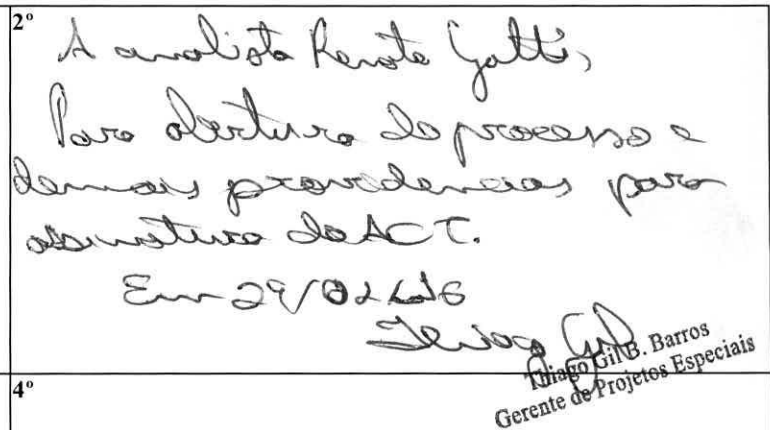 2º
A analista Renata Gatti,
Para abertura do processo e
demais providencias para
assinatura do ACT.
Em 29/02/16
Thiago Gil
Thiago Gil B. Barros
Gerente de Projetos Especiais
4º